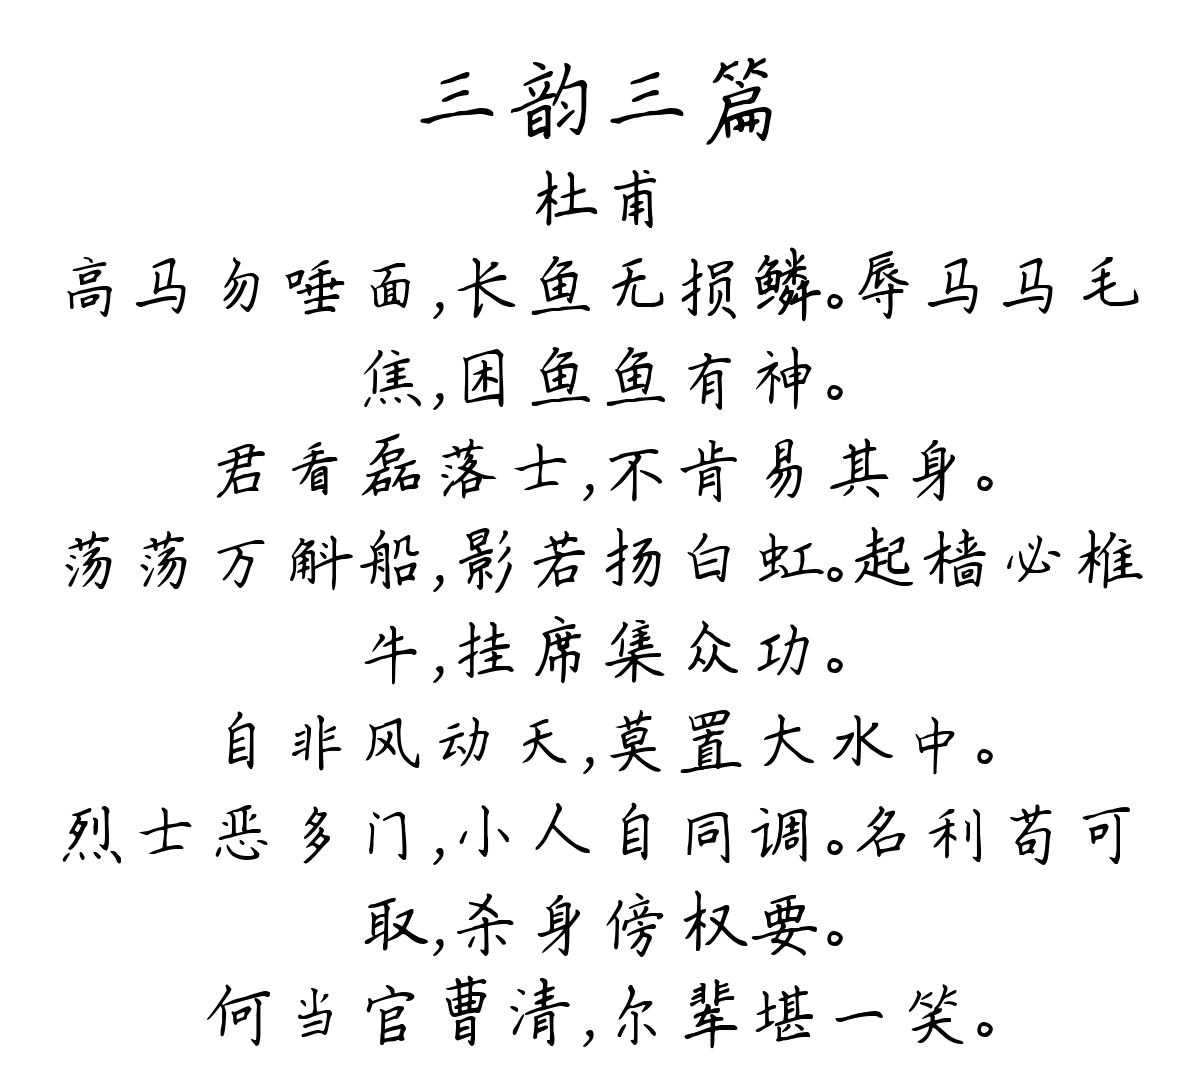 三韵三篇
杜甫
高马勿唾面,长鱼无损鳞。辱马马毛
焦,困鱼鱼有神。
君看磊落士,不肯易其身。
荡荡万斛船,影若扬白虹。起樯必椎
牛,挂席集众功。
自非风动天,莫置大水中。
烈士恶多门,小人自同调。名利苟可
取,杀身傍权要。
何当官曹清,尔辈堪一笑。